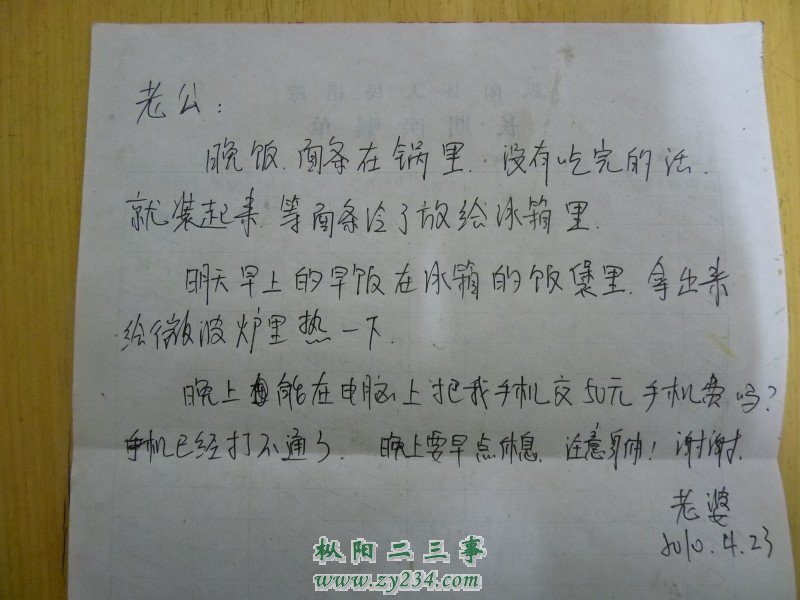 老公:
晚饭.面条在锅里.没有吃完的话.
就装起来.等面条冷了放给冰箱里.
明天早上的早饭在冰箱的饭煲里.拿出来
给微波炉里热一下.
晚上能在电脑上把我手机交50元手机费吗?
手机已经打不通了. 晚上要早点休息. 注意身体! 谢谢.
老婆
2010.4.23
枞阳二三事
www.zy234.com